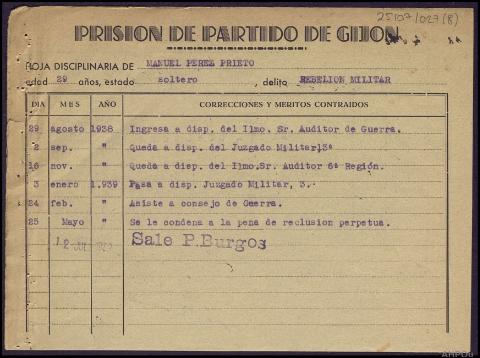 25107/027(8)
PRISION DE PARTIDO DE GIJON
HOJA DISCIPLINARIA DE MANUEL PEREZ PRIETO
edad 29 años, estado soltero, delito REBELION MILITAR
DIA MES AÑO CORRECCIONES Y MERITOS CONTRAIDOS
29 agosto 1938 Ingresa a disp. del Ilmo. Sr. Auditor de Guerra.
2 sep. " Queda a disp. del Juzgado Militar, 3ª
16 nov. " Queda a disp. del Ilmo. Sr. Auditor 6ª Región.
3 enero 1.939 Pasa a disp. Juzgado Militar, 3.
24 feb. " Asiste a consejo de Guerra.
25 Mayo " Se le condena a la pena de reclusion perpetua.
12 Sale P. Burgos
AHPDG